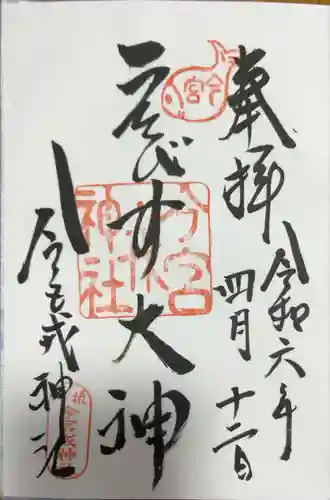 奉拝
令和六年
四月十二日
ゑびす大神
今宮戎神社
今宮
今宮
神社